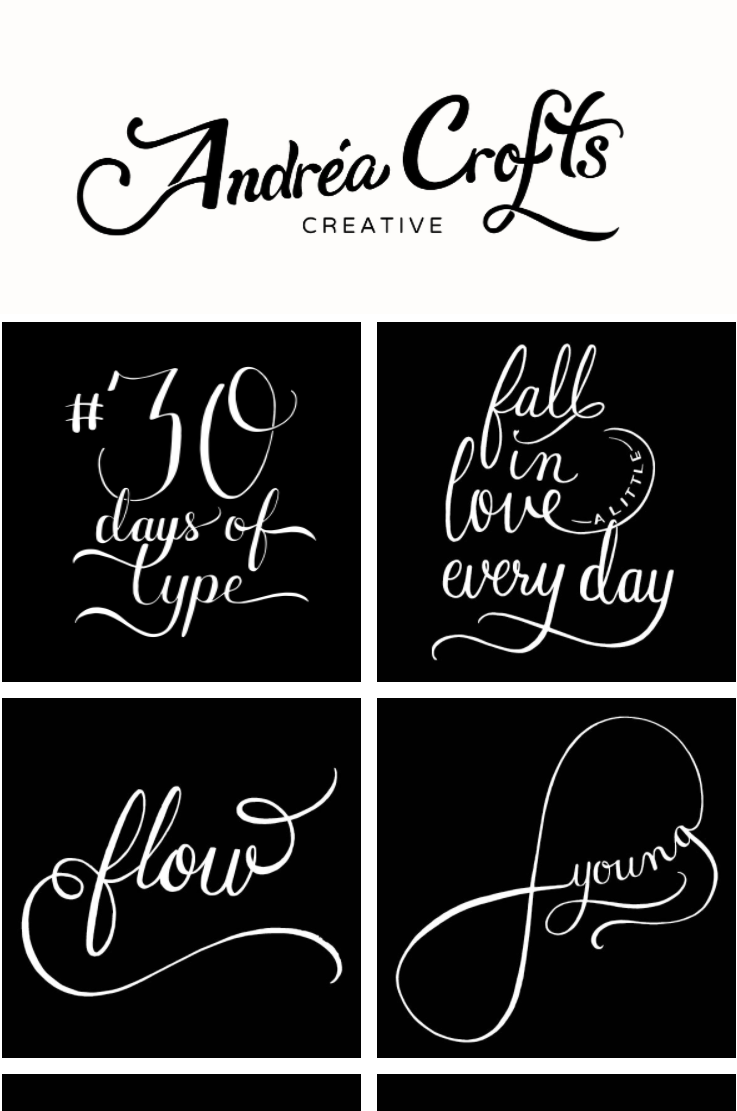 Andréa Crofts
CREATIVE
#30
days of
type
fall
in
love
A LITTLE
every day
flow
young